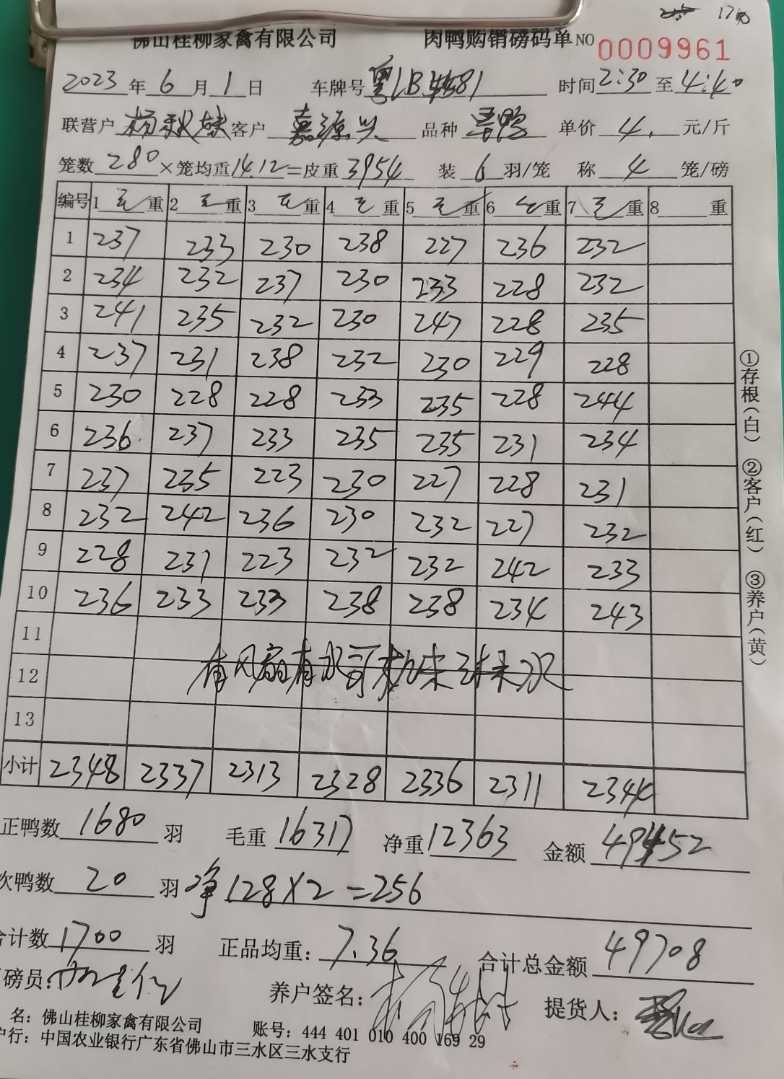 17
佛山桂柳家禽有限公司 肉鸭购销磅码单 NO 0009961
2023年6月1日 车牌号 粤LB4581 时间 2:30 至 4:40
联营户 杨 客户 嘉源兴 品种 单价 4. 元/斤
笼数 280 ×笼均重 14.12=皮重 3954 装 6 羽/笼 称 4 笼/磅
编号 1 毛重 2 毛重 3 毛重 4 毛重 5 毛重 6 毛重 7 毛重 8 重
1 237 233 230 238 227 236 232
2 234 232 237 230 233 228 232
3 241 235 232 230 247 228 235
4 237 231 238 232 230 229 228
5 230 228 228 233 235 228 244
6 236 237 233 235 235 231 234
7 237 235 223 230 227 228 231
8 232 242 236 230 232 227 232
9 228 231 223 232 232 242 233
10 236 233 233 238 238 234 243
11
12 有风扇有
13
小计 2348 2337 2313 2328 2336 2311 2344
正鸭数 1680 羽 毛重 16317 净重 12363 金额 49452
次鸭数 20 羽 净128×2=256
合计数 1700 羽 正品均重: 7.36 合计总金额 49708
磅员: 养户签名: 杨 提货人:
名: 佛山桂柳家禽有限公司 账号: 444 401 010 400 169 29
户行: 中国农业银行广东省佛山市三水区三水支行
①存根(白) ②客户(红) ③养户(黄)